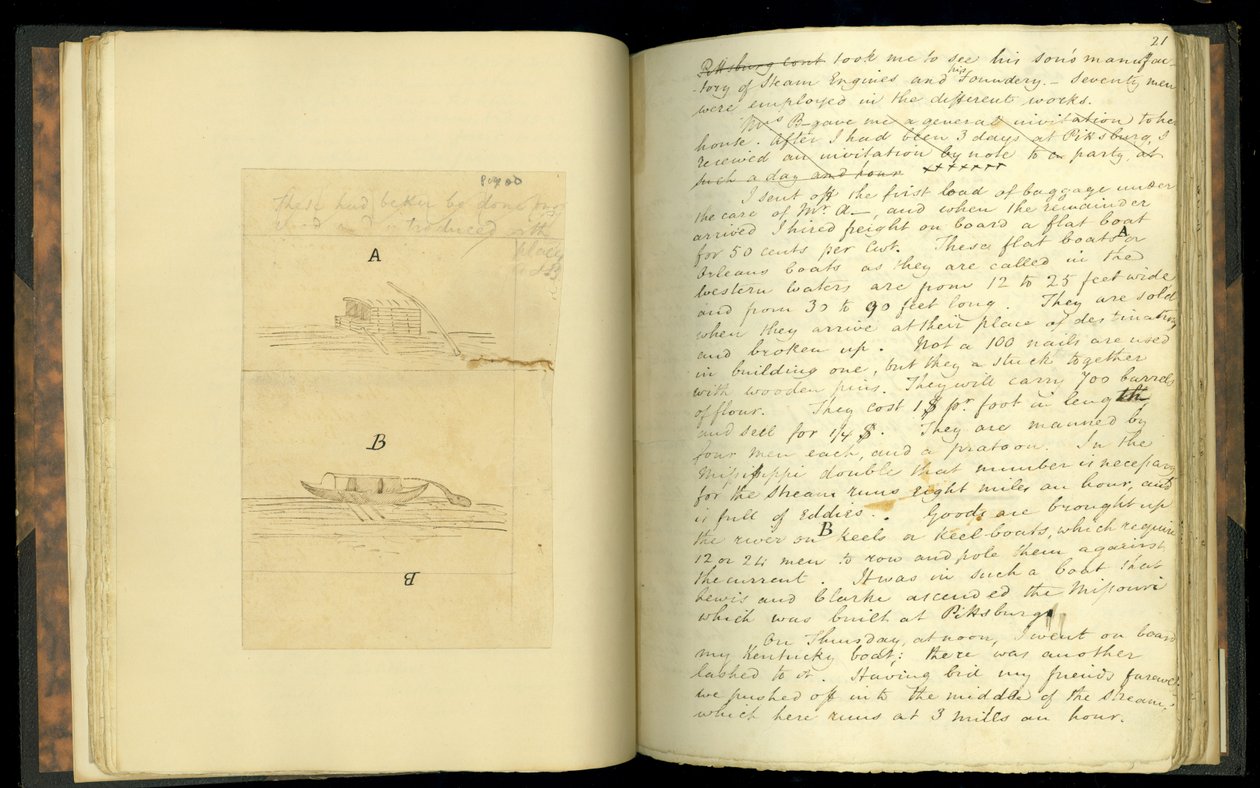 These had better be done
A
B
B
21
Pittsburg cont took me to see his son's manufac
-tory of Steam Engines and his Foundery. – Seventy men
were employed in the different works.
Mrs B– gave me a general invitation to her
house. After I had been 3 days at Pittsburg, I
received an invitation by note to a party at
such a day and hour xxxxxx
I sent off the first load of baggage under
the care of Mr. A–, and when the remainder
arrived I hired freight on board a flat boat
A
for 50 cents per Cwt. These flat boats or
Orleans boats as they are called in the
Western Waters are from 12 to 25 feet wide
and from 30 to 90 feet long. They are sold
when they arrive at their place of destination
and broken up. Not a 100 nails are used
in building one, but they a stuck together
with wooden pins. They will carry 700 barrels
of flour. They cost 1$ pr foot in length
and sell for 1/4 $. They are manned by
four men each, and a pratoon. In the
Missisippi double that number is necessary
for the stream runs eight miles an hour, and
is full of Eddies. Goods are brought up
B
the river on Keels or Keel-boats, which require
12 or 24 men to row and pole them against
the current. It was in such a boat that
Lewis and Clarke ascended the Missouri
which was built at Pittsburg
On Thursday, at noon, I went on board
my Kentucky boat; there was another
lashed to it. Having bid my friends farewel
we pushed off into the middle of the stream,
which here runs at 3 mills an hour.